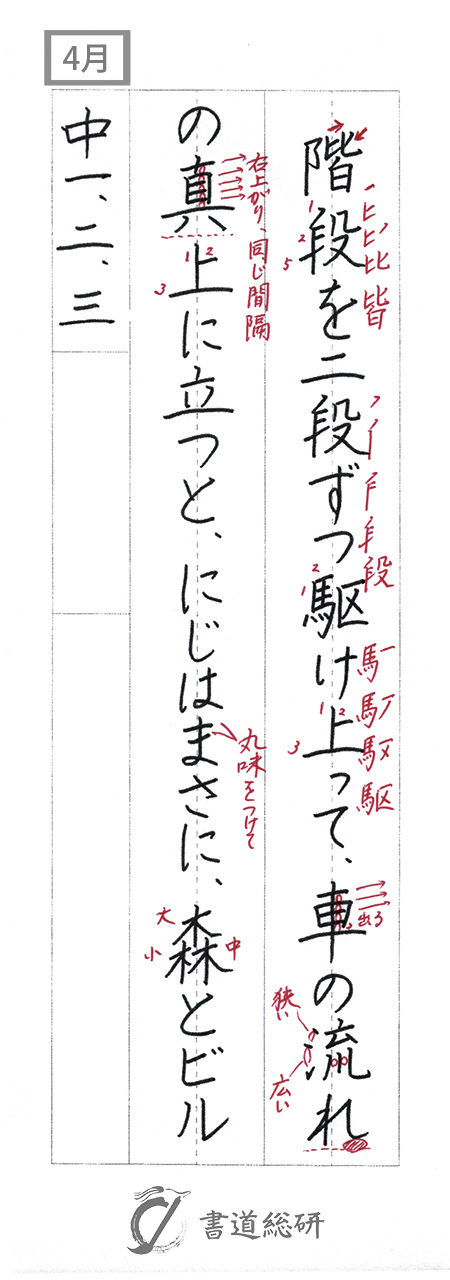 4月
階段を二段ずつ駆け上って、車の流れ
の真上に立つと、にじはまさに、森とビル
中一、二、三
右上がり、同じ間隔
丸味をつけて
大
小
中
狭い
広い
出る
書道総研